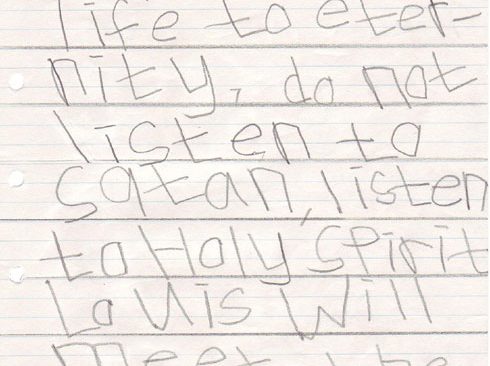 life to eter-
nity, do not
listen to
satan, listen
to Holy Spirit
Louis Will
meet the